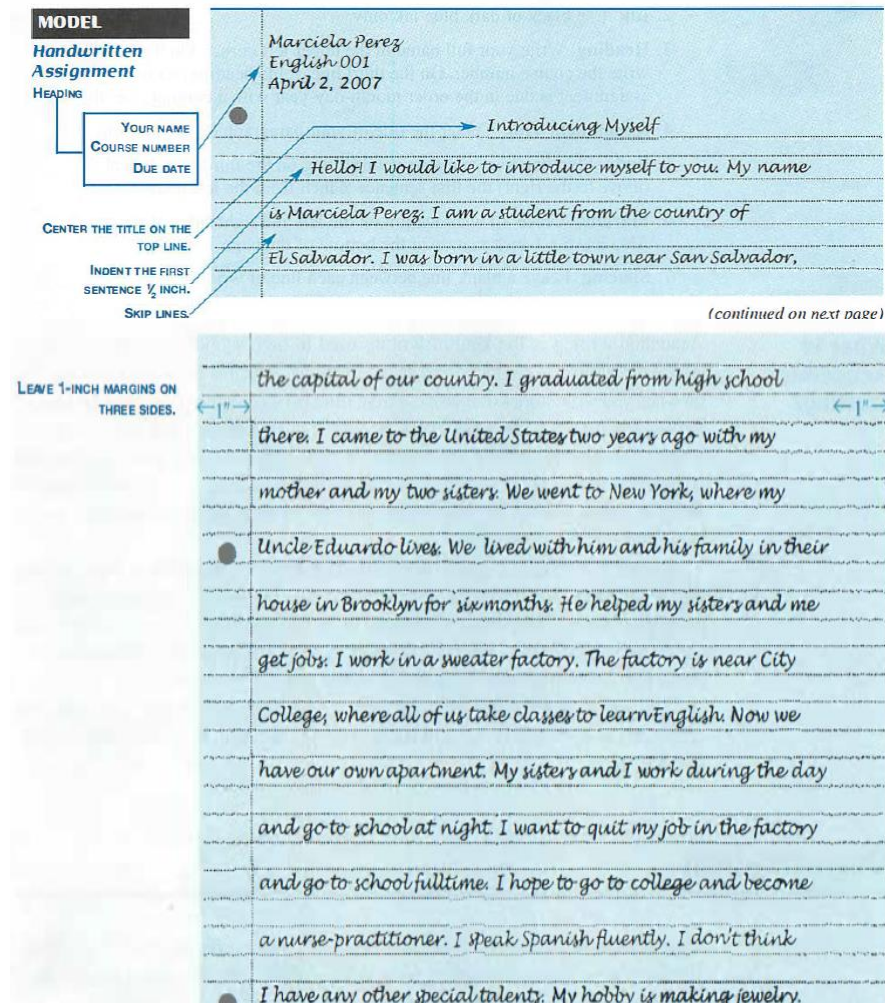 MODEL
Handwritten
Assignment
HEADING
YOUR NAME
COURSE NUMBER
DUE DATE
CENTER THE TITLE ON THE
TOP LINE.
INDENT THE FIRST
SENTENCE ½ INCH.
SKIP LINES.
Marciela Perez
English 001
April 2, 2007
Introducing Myself
Hello! I would like to introduce myself to you. My name
is Marciela Perez. I am a student from the country of
El Salvador. I was born in a little town near San Salvador,
(continued on next page)
LEAVE 1-INCH MARGINS ON
THREE SIDES.
←1"→
←1"→
the capital of our country. I graduated from high school
there. I came to the United States two years ago with my
mother and my two sisters. We went to New York, where my
Uncle Eduardo lives. We lived with him and his family in their
house in Brooklyn for six months. He helped my sisters and me
get jobs. I work in a sweater factory. The factory is near City
College, where all of us take classes to learn English. Now we
have our own apartment. My sisters and I work during the day
and go to school at night. I want to quit my job in the factory
and go to school fulltime. I hope to go to college and become
a nurse-practitioner. I speak Spanish fluently. I don't think
I have any other special talents. My hobby is making jewelry.